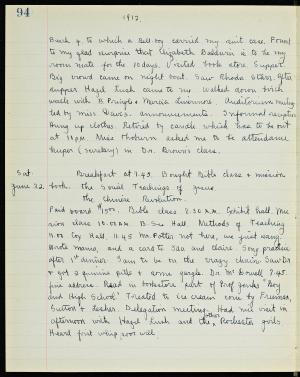 94
1912.
Bunk 4 to which a bell boy carried my suit case. Found
to my glad surprise that Elizabeth Baldwin is to be my
room mate for the 10 days. Visited book store. Supper
Big crowd came on night boat. Saw Rhoda After
supper Hazel Lush came to me. Walked down birch
walk with B. Pringle & Marcia Livermore. Auditorium meeting
led by Miss announcements. Informal reception
Hung up clothes. Retired by candle which has to be out
at 10 P.M. Miss Thoburn asked me to be attendance
keeper (secretary) in Dr. Brown's class.
Sat. Breakfast at 7.45. Bought Bible class & mission
June 22. book. The Social Teachings of Jesus
The Chinese Revolution.
Paid board Bible class 8.30 A.M. Exhibit hall. Mis-
sion class 10.00 A.M. Hall. Methods of Teaching
Hall. 11.45 Mr. not here, we just sang.
Wrote mama, and a card to Sae and Claire Song practice
after 1st dinner. I am to be on the crazy chain. Saw Dr
& got 2 quinine pills & some gargle. Dr. 7.45
fine address. Read in bookstore part of Prof "Boy
and High School" Treated to ice cream cone by Freeman,
Sutton & Lesher. Delegation meeting. Had nice visit in
afternoon with Hazel Lush and the other Rochester girls
Heard first whip poor will.